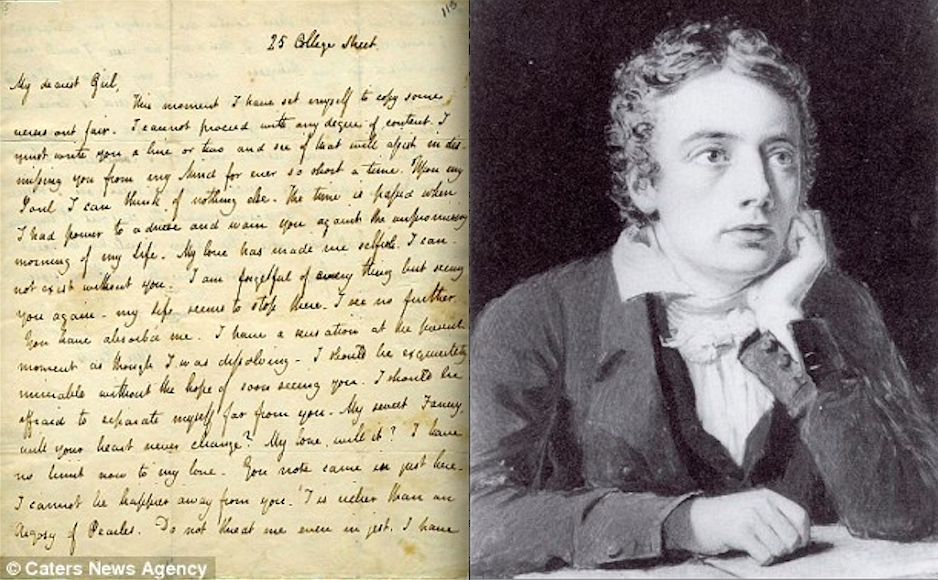 25 College Street.
My dearest Girl,
This moment I have set myself to copy some
verses out fair. I cannot proceed with any degree of content. I
must write you a line or two and see if that will assist in dis-
missing you from my Mind for ever so short a time. Upon my
Soul I can think of nothing else. The time is passed when
I had power to advise and warn you against the unpromising
morning of my Life. My love has made me selfish. I can-
not exist without you. I am forgetful of every thing but seeing
you again - my Life seems to stop there. I see no further.
You have absorb'd me. I have a sensation at the present
moment as though I was dissolving - I should be exquisitely
miserable without the hope of soon seeing you. I should be
affraid to separate myself far from you. My sweet Fanny,
will your heart never change? My love, will it? I have
no limit now to my love - You note came in just here.
I cannot be happier away from you. 'T is richer than an
Argosy of Pearles. Do not threat me even in jest. I have
© Caters News Agency